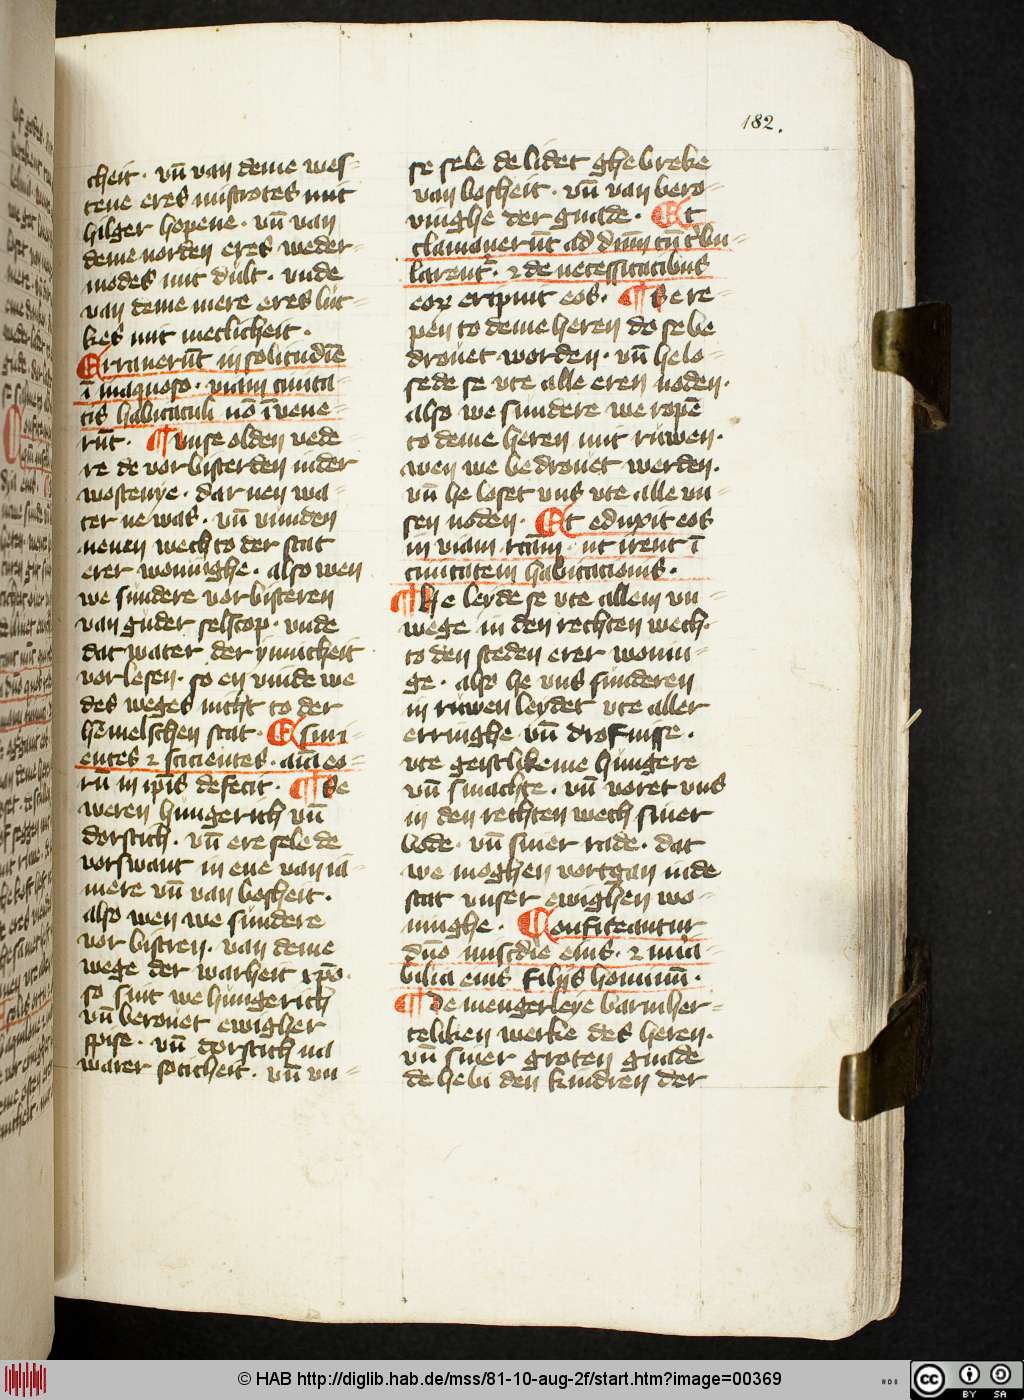 182.
cheit · vn̄ van deme wes-
tene eres mistrotes mit
hilger hopene · vn̄ van
deme norden eres weder-
modes mit dult · vnde
van deme mere eres luc-
kes mit metlicheit ·
Erraverūt in solitudīe
ī inaquoso · viam civita-
tis habitaculi nō īvene-
rūt · ¶ Vnse olden vede-
re de vorbisterden in der
wostenye · dar nen wa-
ter ne was · vn̄ vunden
nenen wech to der stat
erer woninghe · also wen
we sundere vorbisteren
van guder selscop · vnde
dat water der ynnicheit
vorlesen · so en vinde we
des weges nicht to der
hēmelschen stat · Esuri-
entes ⁊ scicientes · aīa eo-
rū in ip̄is defecit · ¶ Se
weren hungerich vn̄
dorstich · vn̄ ere sele de
vorswant in ene van ia-
mere vn̄ van bosheit ·
also wen we sundere
vorbistren · van deme
wege der warheit xp̄o ·
so sint we hungerich
vn̄ berovet ewigher
spise · vn̄ dorstich na
warer soticheit · vn̄ vn-
se sele de lidet ghebreke
van bosheit · vn̄ van bero-
vinghe der gnade · Et
clamaverūt ad dn̄m cū t'bu-
larent' · ⁊ de necessitatibus
eoꝝ eripuit eos · ¶ Se re-
pen to deme heren do se be
drovet worden · vn̄ he lo-
sede se vte alle eren noden ·
also we sundere we ropē
to deme heren mit ruwen ·
wen we bedrovet werden ·
vn̄ he loset vns vte alle vn-
sen noden · Et eduxit eos
in viam rcām · ut irent ī
civitatem habitacionis ·
¶ He leyde se vte allem vn-
wege in den rechten wech ·
to den steden erer wonin-
ge · also he vns sunderen
in ruwen leydet vte aller
erringhe vn̄ drofnisse ·
vte geistlikeme hungere
vn̄ smachte · vn̄ voret vns
in den rechten wech siner
bode · vn̄ siner rade · dat
we moghen vortgan in de
stat vnser ewighen wo-
ninghe · Confiteantur
dn̄o miscd̄ie eius · ⁊ mira-
bilia eius filijs hominū ·
¶ De mengerleye barmher-
teliken werke des heren ·
vn̄ siner groten gnade
de hebn den kindren der
© HAB http://diglib.hab.de/mss/81-10-aug-2f/start.htm?image=00369
HAB
cc BY SA